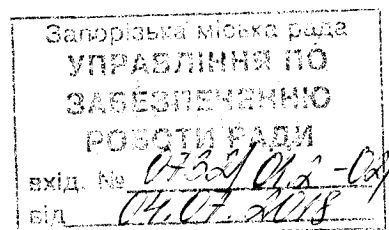 Запорізька міська рада
УПРАВЛІННЯ ПО
ЗАБЕЗПЕЧЕННЮ
РОБОТИ РАДИ
вхід. № 0732/01.2-02/
від 04.07.2018